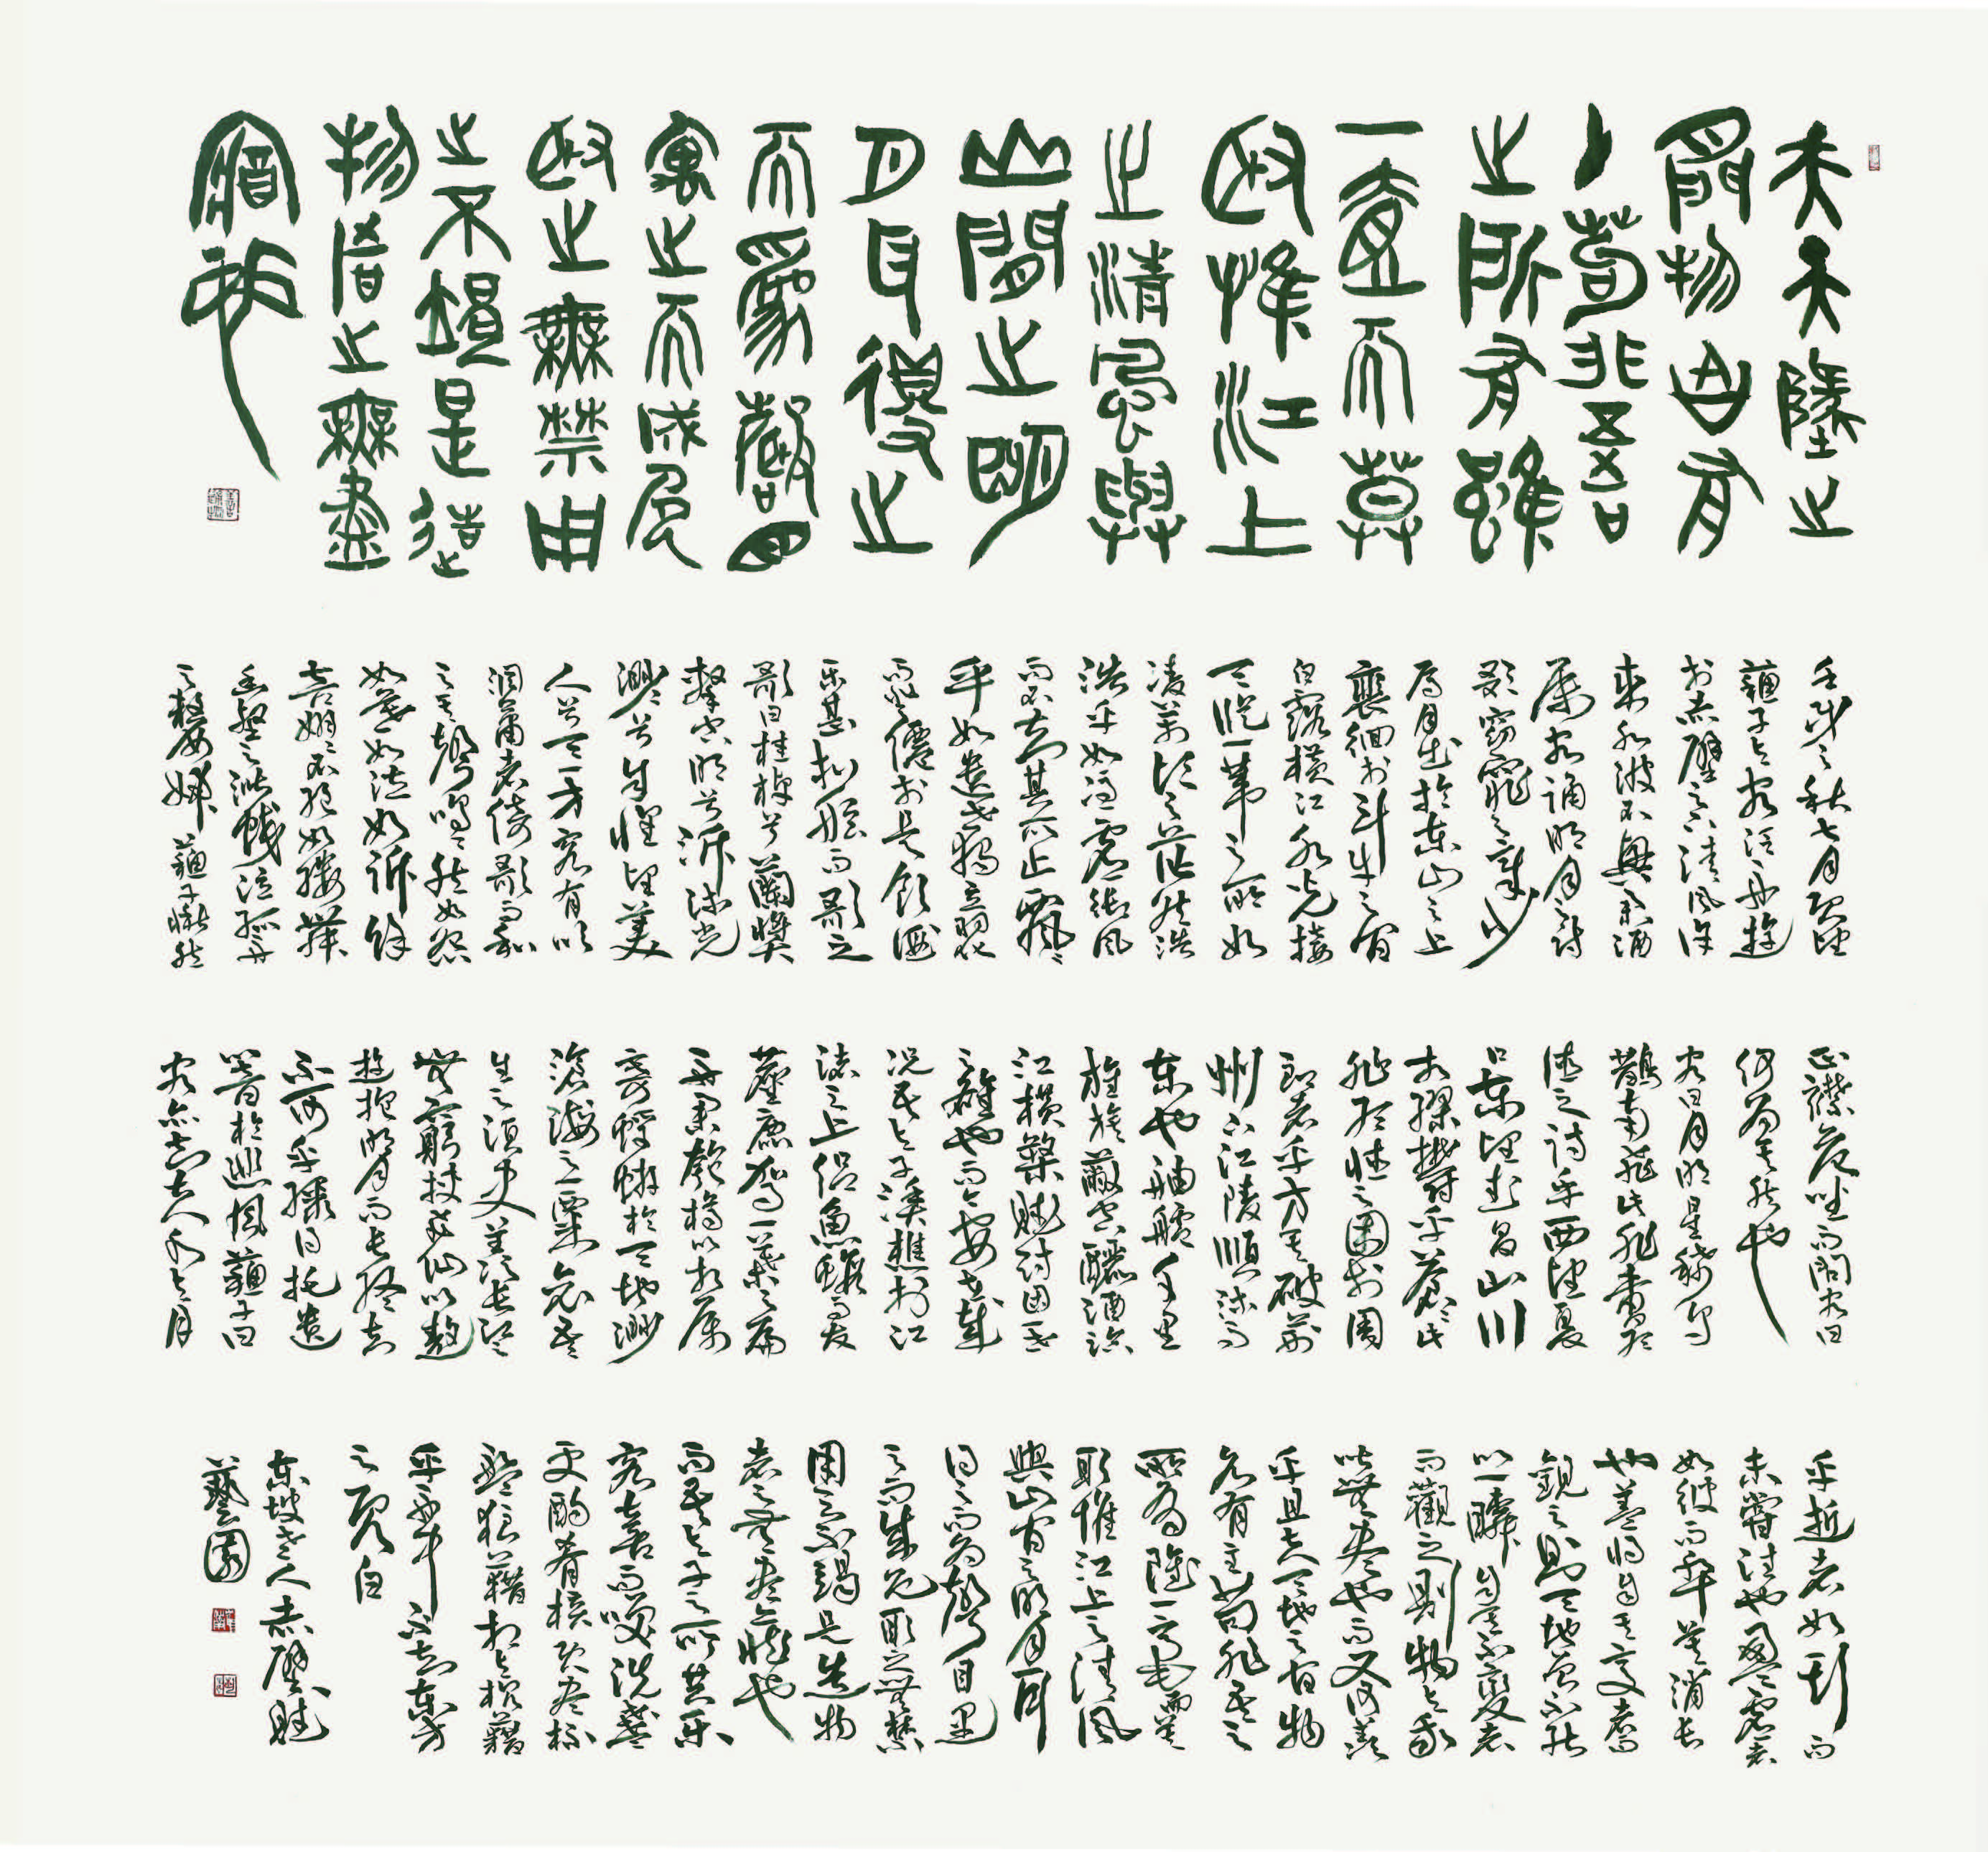 夫天墬之
間物各有
主苟非吾
之所有雖
一毫而莫
取惟江上
之清風與
山間之明
月耳得之
而為聲目
寓之而成色
取之無禁用
之不竭是造
物者之無盡
藏也
壬戌之秋七月既望
蘇子與客泛舟遊
於赤壁之下清風徐
來水波不興舉酒
屬客誦明月之詩
歌窈窕之章少
焉月出於東山之上
裴徊於斗牛之間
白露橫江水光接
天縱一葦之所如
凌萬頃之茫然浩
浩乎如馮虛御風
而不知其所止飄飄
乎如遺世獨立羽化
而登僊於是飲酒
樂甚扣舷而歌之
歌曰桂棹兮蘭槳
擊空明兮泝流光
渺渺兮余懷望美
人兮天一方客有吹
洞簫者倚歌而和
之其聲嗚嗚然如怨
如慕如泣如訴餘
音嫋嫋不絕如縷舞
幽壑之潛蛟泣孤舟
之嫠婦蘇子愀然
正襟危坐而問客曰
何為其然也
客曰月明星稀烏
鵲南飛此非曹孟
德之詩乎西望夏
口東望武昌山川
相繆鬱乎蒼蒼此
非孟德之困於周
郎者乎方其破荊
州下江陵順流而
東也舳艫千里
旌旗蔽空釃酒臨
江橫槊賦詩固一世
之雄也而今安在哉
況吾與子漁樵於江
渚之上侶魚蝦而友
麋鹿駕一葉之扁
舟舉匏樽以相屬
寄蜉蝣於天地渺
滄海之一粟哀吾
生之須臾羨長江之
無窮挾飛仙以遨
遊抱明月而長終知
不可乎驟得託遺
響於悲風蘇子曰
客亦知夫水與月
乎逝者如斯而
未嘗往也盈虛者
如彼而卒莫消長
也蓋將自其變者而
觀之則天地曾不能
以一瞬自其不變者
而觀之則物與我
皆無盡也而又何羨
乎且夫天地之間物
各有主苟非吾之
所有雖一毫而莫
取惟江上之清風
與山間之明月耳
得之而為聲目遇
之而成色取之無禁
用之不竭是造物
者之無盡藏也
而吾與子之所共樂
客喜而笑洗盞
更酌肴核既盡杯
盤狼藉相與枕藉
乎舟中不知東方
之既白
東坡老人赤壁賦
藝園